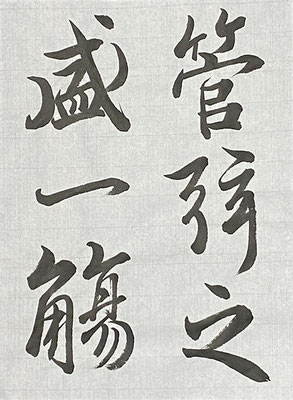 管弦之
盛一觴